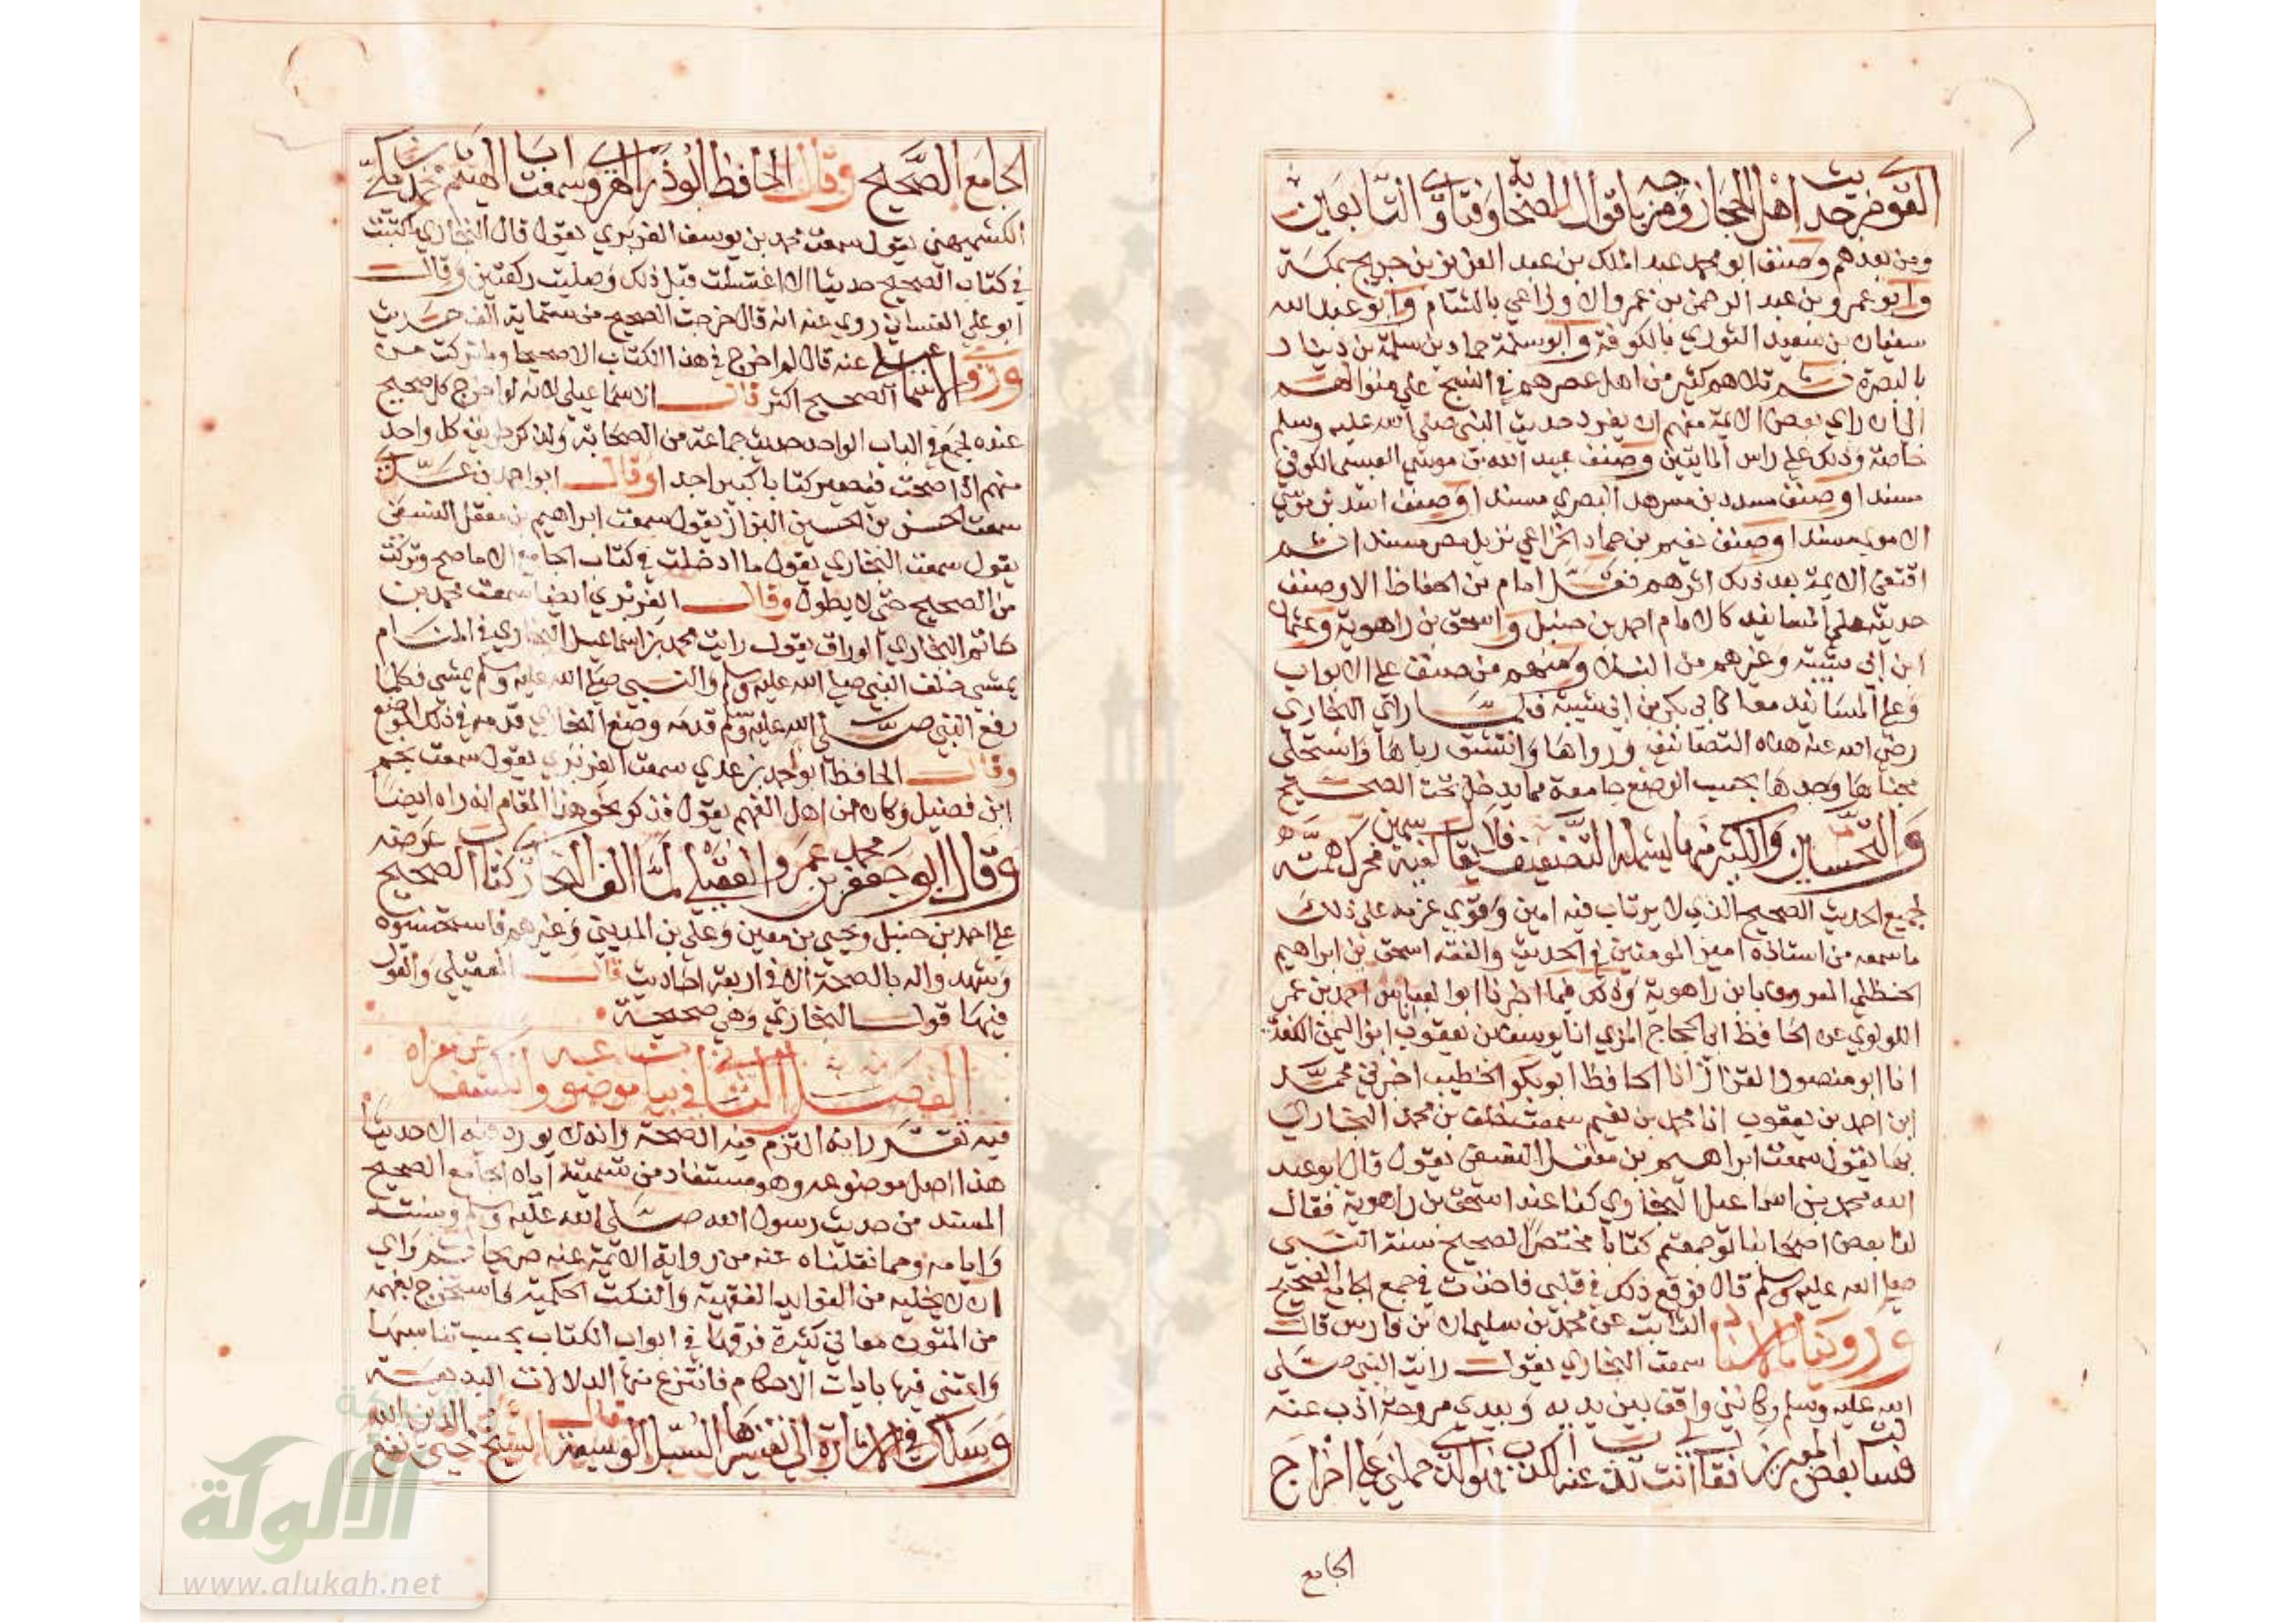 القوي من حديث اهل الحجاز ومزجه باقوال الصحابة وفتاوي التابعين
ومن بعدهم وصنف ابو محمد عبد الملك بن عبد العزيز بن جريج بمكة
وابو عمرو بن عبد الرحمن بن عمرو الاوزاعي بالشام وابو عبد الله
سفيان بن سعيد الثوري بالكوفة وابو سلمة حماد بن سلمة بن دينار
بالبصرة ثم تلاهم كثير من اهل عصرهم في النسج علي منوالهم
الي ان راي بعض الايمة منهم ان يفرد حديث النبي صلي الله عليه وسلم
خاصة وذلك علي راس المايتين وصنف عبيد الله بن موسي العبسي الكوفي
مسندا وصنف مسدد بن مسرهد البصري مسندا وصنف اسد بن موسي
الاموي مسندا وصنف نعيم بن حماد الخزاعي نزيل مصر مسندا ثم
اقتفي الايمة بعد ذلك اثرهم فقل امام من الحفاظ الا وصنف
حديثه علي المسانيد كالامام احمد بن حنبل واسحق بن راهوية وعثمان
ابن ابي شيبة وغيرهم من النبلاء ومنهم من صنف علي الابواب
وعلي المسانيد معا كابي بكر بن ابي شيبة فلما راي البخاري
رضي الله عنه هذه التصانيف ورواها وانتشق رياها واستحلي
محياها وجدها بحسب الوضع جامعة مما يدخل تحت الصحيح
والتحسين والكثير منها يشمله التضعيف فلا يقال لغثه سمين فحرك همته
لجميع الحديث الصحيح الذي لا يرتاب فيه امين وقوي عزمه علي ذلك
ما سمعه من استاذه امير المومنين في الحديث والفقه اسحق بن ابراهيم
الحنظلي المعروف بابن راهوية وذلك فيما اخبرنا ابو العباس احمد بن عمر
اللولوي عن الحافظ ابي الحجاج المزي انا يوسف بن يعقوب ابو اليمن الكندي
انا ابو منصور القزاز انا الحافظ ابو بكر الخطيب اخبرني محمد
ابن احمد بن يعقوب انا محمد بن نعيم سمعت خلف بن محمد البخاري
بها يقول سمعت ابراهيم بن معقل النسفي يقول قال ابو عبد
الله محمد بن اسماعيل البخاري كنا عند اسحق بن راهوية فقال
لنا بعض اصحابنا لو جمعتم كتابا مختصرا لصحيح سنة النبي
صلي الله عليه وسلم قال فوقع ذلك في قلبي فاخذت في جمع الجامع الصحيح
وروينا بالاسناد الثابت عن محمد بن سليمان بن فارس قال
سمعت البخاري يقول رايت النبي صلي
الله عليه وسلم وكانني واقف بين يديه وبيدي مروحة اذب عنه
فسالت بعض المعبرين فقال انت تذب عنه الكذب فهو الذي حملني علي اخراج
الجامع
الجامع الصحيح وقال الحافظ ابو ذر الهروي سمعت ابا الهيثم محمد بن مكي
الكشميهني يقول سمعت محمد بن يوسف الفربري يقول قال البخاري ما كتبت
في كتاب الصحيح حديثا الا اغتسلت قبل ذلك وصليت ركعتين وقال
ابو علي الغساني روي عنه انه قال خرجت الصحيح من ستماية الف حديث
وروي الاسماعيلي عنه قال لم اخرج في هذا الكتاب الا صحيحا وما تركت من
الصحيح اكثر قال الاسماعيلي لانه لو اخرج كل صحيح
عنده لجمع في الباب الواحد حديث جماعة من الصحابة ولذكر طريق كل واحد
منهم اذا صحت فيصير كتابا كبيرا جدا وقال ابو احمد بن عدي
سمعت الحسن بن الحسين البزاز يقول سمعت ابراهيم بن معقل النسفي
يقول سمعت البخاري يقول ما ادخلت في كتاب الجامع الا ما صح وتركت
من الصحيح حتي لا يطول وقال الفربري ايضا سمعت محمد بن
حاتم البخاري الوراق يقول رايت محمد بن اسماعيل البخاري في المنام
يمشي خلف النبي صلي الله عليه وسلم والنبي صلي الله عليه وسلم يمشي فكلما
رفع النبي صلي الله عليه وسلم قدمه وضع البخاري قدمه في ذلك الموضع
وقال الحافظ ابو احمد بن عدي سمعت الفربري يقول سمعت نجم
ابن فضيل وكان من اهل الفهم يقول فذكر نحو هذا المقام انه راه ايضا
وقال ابو جعفر محمد بن عمرو العقيلي لما الف البخاري كتاب الصحيح عرضه
علي احمد بن حنبل ويحيي بن معين وعلي بن المديني وغيرهم فاستحسنوه
وشهدوا له بالصحة الا في اربعة احاديث قال العقيلي والقول
فيها قول البخاري وهي صحيحة
الفصل الثاني في بيان موضوعه والكشف عن مغزاه
فيه تقرر انه التزم فيه الصحة وانه لا يورد فيه الا حديثا
هذا اصل موضوعه وهو مستفاد من تسميته اياه الجامع الصحيح
المسند من حديث رسول الله صلي الله عليه وسلم وسننه
وايامه ومما نقلناه عنه من رواية الايمة عنه صريحا ثم راي
ان لا يخليه من الفوايد الفقهية والنكت الحكمية فاستخرج بفهمه
من المتون معاني كثيرة فرقها في ابواب الكتاب بحسب تناسبها
واعتني فيها بايات الاحكام فانتزع منها الدلالات البديعة
وسلك في الاشارة الي تفسيرها السبل الوسيعة قال الشيخ محيي الدين نفع الله
شبكة
الألوكة
www.alukah.net